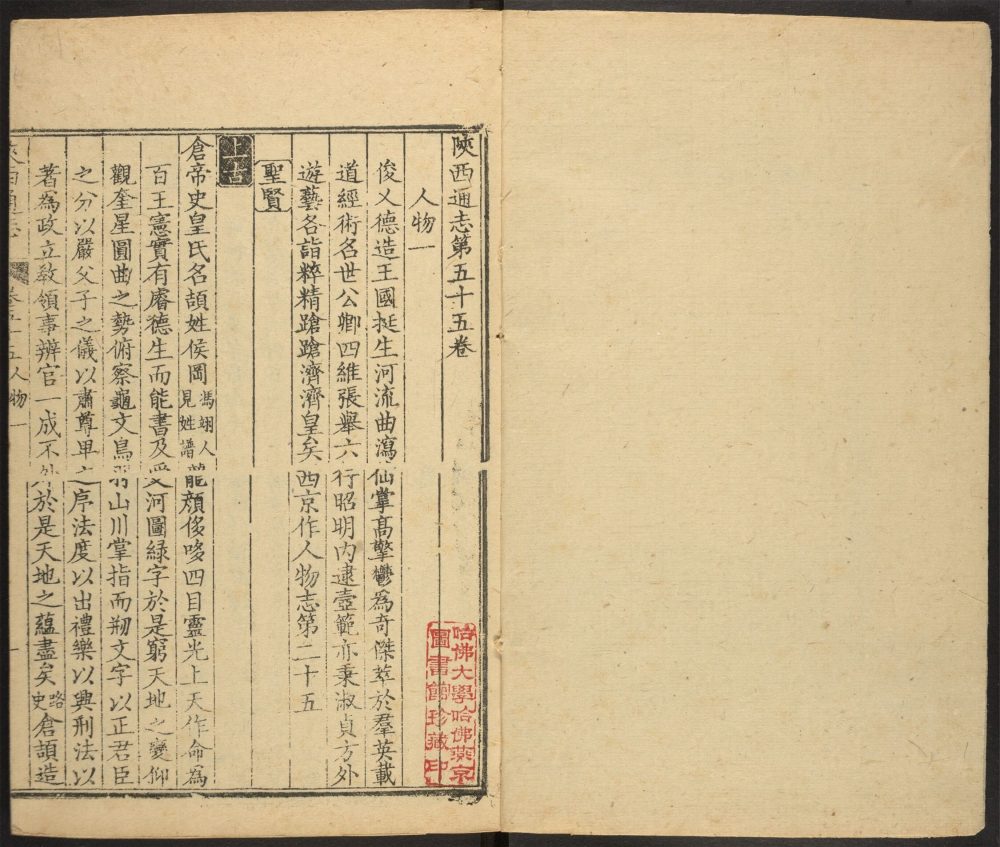 陝西通志第五十五卷
人物一
俊乂德造王國挺生河流曲瀉仙掌高擎鬱爲奇傑萃於羣英載
道經術名世公卿四維張舉六行昭明内逮壼範亦秉淑貞方外
遊藝各詣粹精蹌蹌濟濟皇矣西京作人物志第二十五
聖賢
上古
倉帝史皇氏名頡姓侯岡馮翊人見姓譜龍顏侈哆四目靈光上天作命爲
百王憲實有睿德生而能書及受河圖綠字於是窮天地之變仰
觀奎星圓曲之勢俯察龜文鳥羽山川掌指而刱文字以正君臣
之分以嚴父子之儀以肅尊卑之序法度以出禮樂以興刑法以
著爲政立教領事辨官一成不外於是天地之蘊盡矣路史倉頡造
陝西通志
卷五十五人物一
一
哈佛大學哈佛燕京
圖書館珍藏印